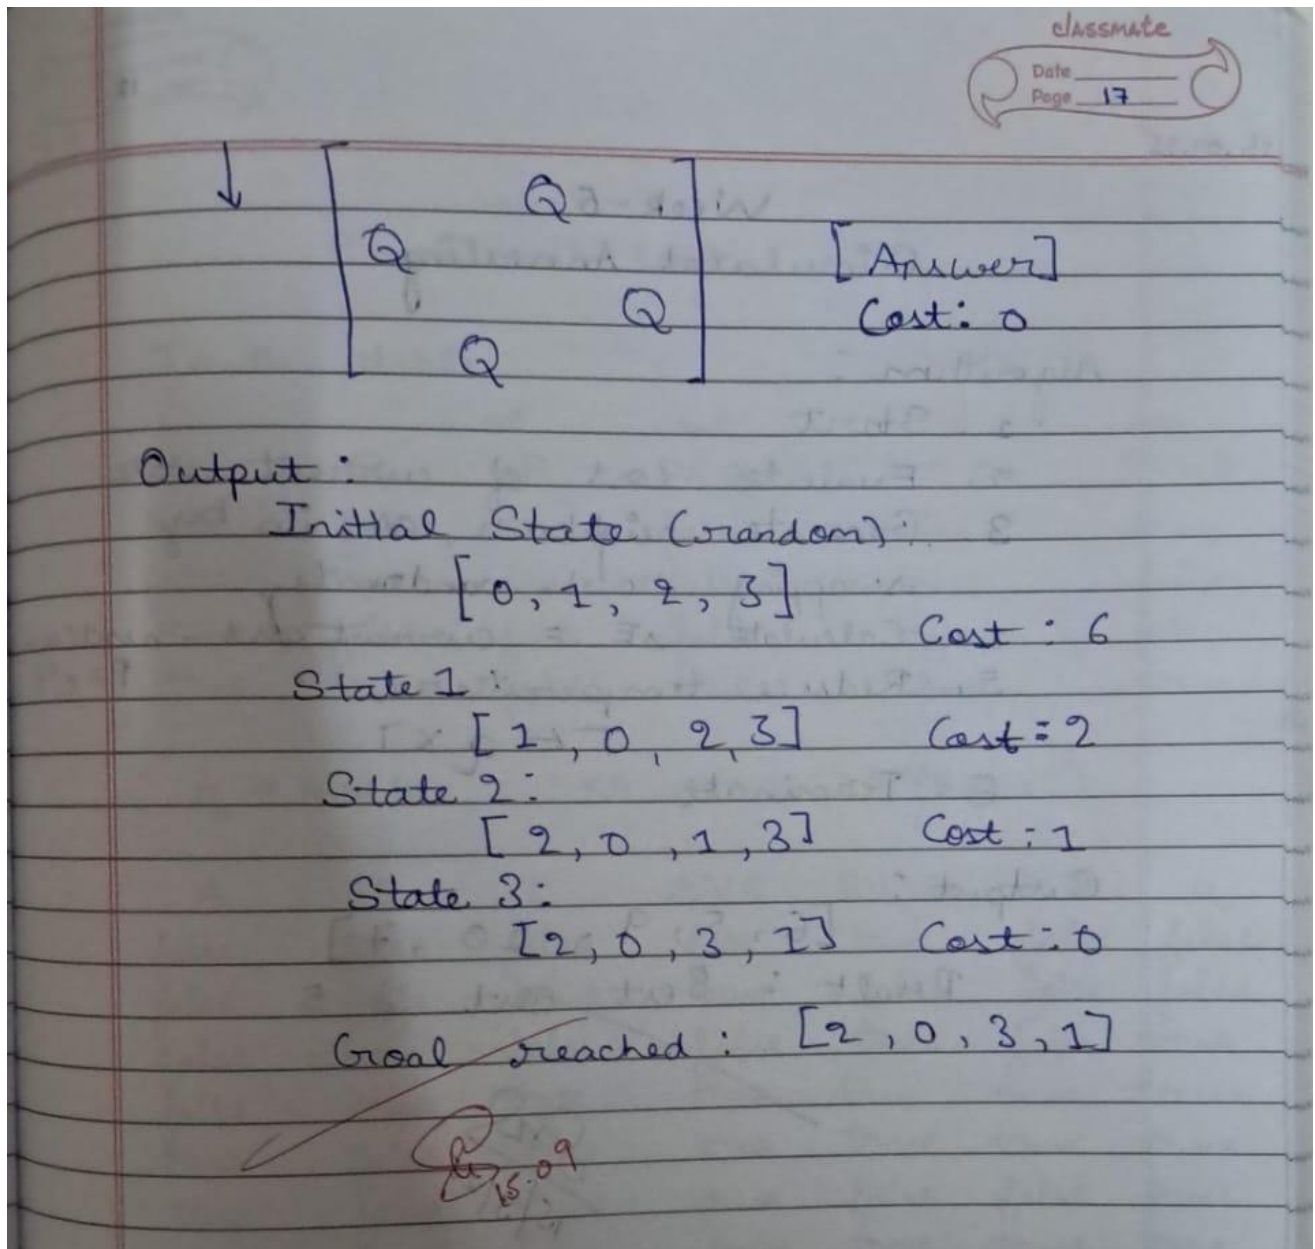 classmate
Date
Page 17
Q
Q
[Answer]
Q
Cost: 0
Q
Output :
Initial State (random):
[0, 1, 2, 3]
Cost : 6
State 1 :
[1, 0, 2, 3] Cost = 2
State 2 :
[2, 0, 1, 3] Cost : 1
State 3 :
[2, 0, 3, 1] Cost : 0
Goal reached : [2, 0, 3, 1]
15.09